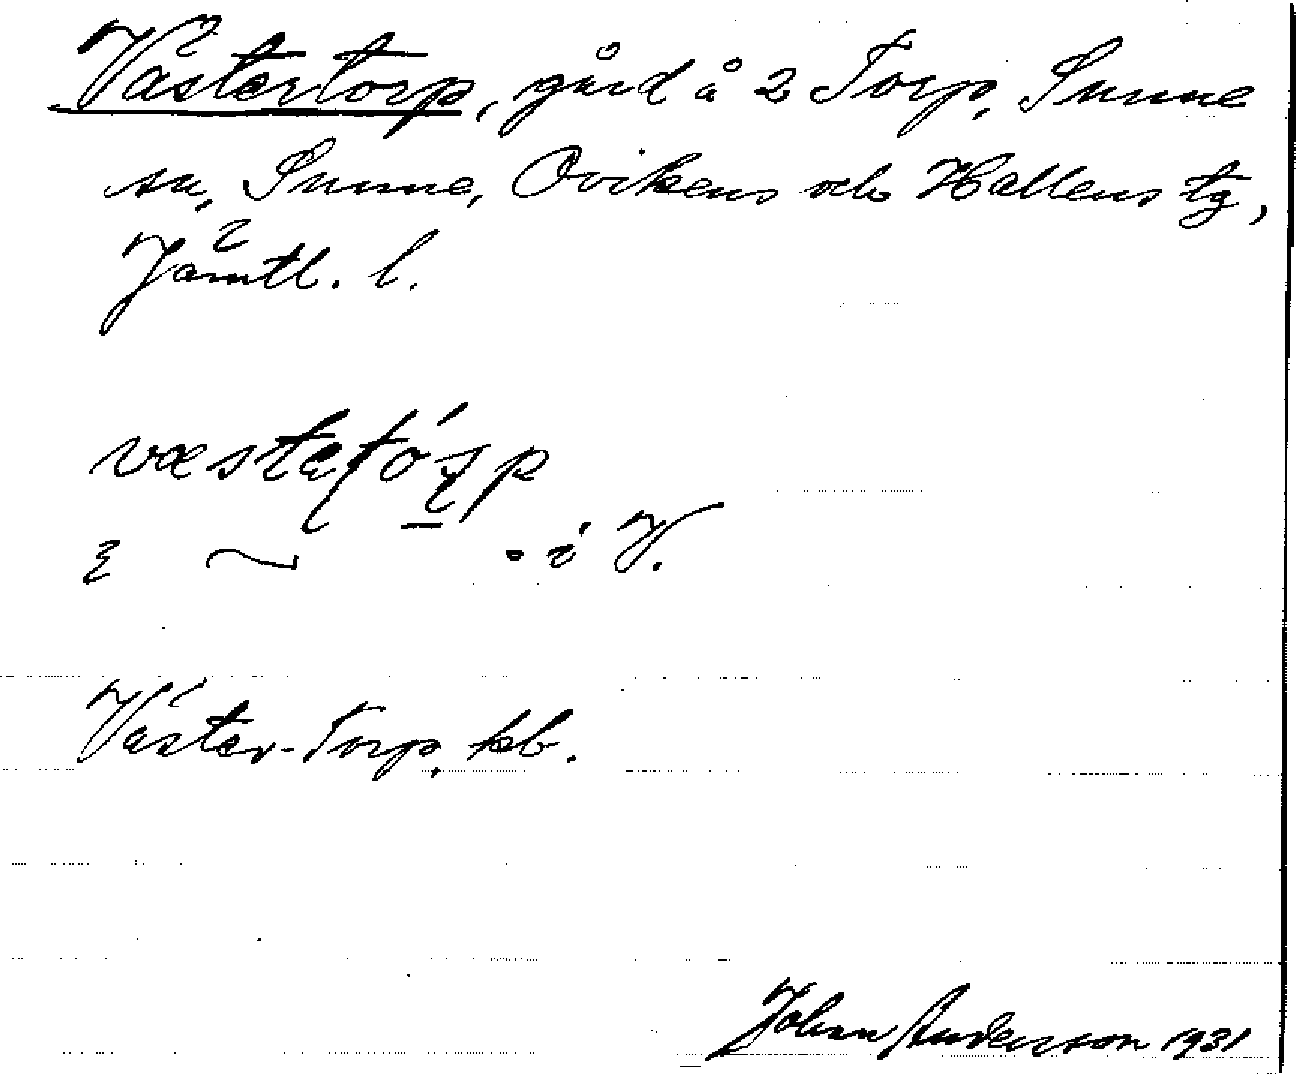 Västertorp, gård å 2 Torp, Sunne
sn, Sunne, Ovikens och Hallens tg,
Jämtl. l.
i V.
Väster-Torp, kb.
Johan Anderson 1931